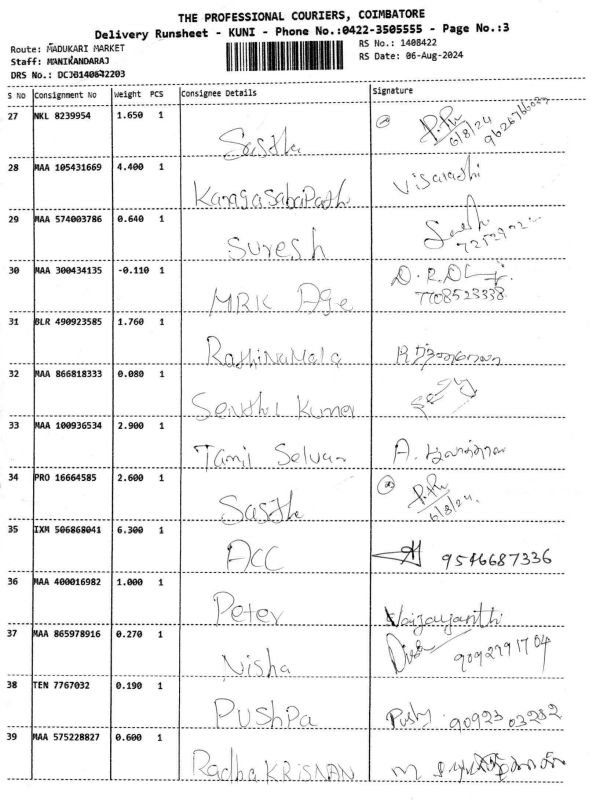 THE PROFESSIONAL COURIERS, COIMBATORE
Delivery Runsheet - KUNI - Phone No.:0422-3505555 - Page No.:3
Route: MADUKARI MARKET
RS No.: 1408422
Staff: MANIKANDARAJ
RS Date: 06-Aug-2024
DRS No.:
S No Consignment No Weight PCS Consignee Details Signature
27 NKL 8239954 1.650 1
Sastha 6/8/24
28 MAA 105431669 4.400 1
KanagaSabaPathi Visaladhi
29 MAA 574003786 0.640 1
Suresh
30 MAA 300434135 -0.110 1
MRK Age 7708523338
31 BLR 490923585 1.760 1
RathinaMala
32 MAA 866818333 0.080 1
Senthil Kumar
33 MAA 100936534 2.900 1
Tamil Selvan A.
34 PRO 16664585 2.600 1
Sastha 6/8/24.
35 IXM 506868041 6.300 1
ACC 9546687336
36 MAA 400016982 1.000 1
Peter Vaijayanthi
37 MAA 865978916 0.270 1
Nisha 9092791704
38 TEN 7767032 0.190 1
PUSHPA 90923 03282
39 MAA 575228827 0.600 1
Radha KRISNAN